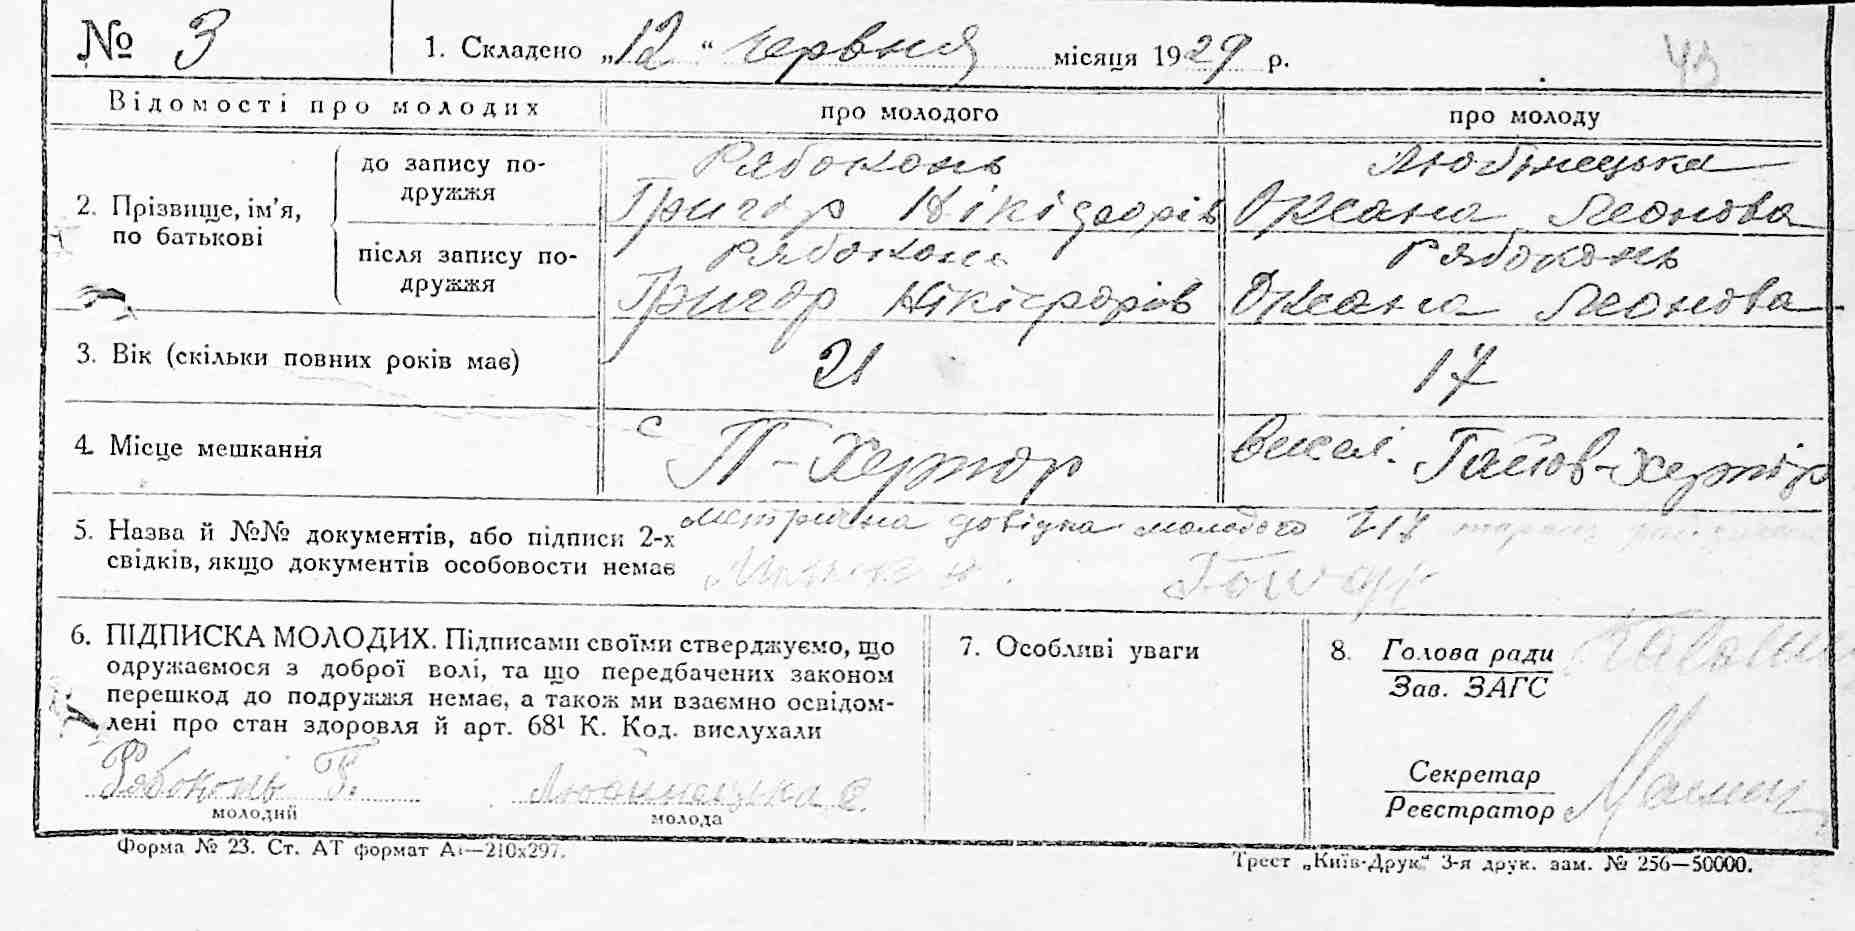 № 3
1. Складено „12“ червня місяця 1929 р.
43
Відомості про молодих
про молодого
про молоду
2. Прізвище, ім’я, по батькові
до запису подружжя
Рябоконь
Григор Нікіфорів
Любінецька
Оксана Леонова
після запису подружжя
Рябоконь
Григор Нікіфорів
Рябоконь
Оксана Леонова
3. Вік (скільки повних років має)
21
17
4. Місце мешкання
с П-Хутор
висел. Гаїов-хутір
5. Назва й №№ документів, або підписи 2-х
свідків, якщо документів особовости немає
метрична довідка молодого
6. ПІДПИСКА МОЛОДИХ. Підписами своїми стверджуємо, що
одружаємося з доброї волі, та що передбачених законом
перешкод до подружжя немає, а також ми взаємно освідом-
лені про стан здоровля й арт. 68¹ К. Код. вислухали
Рябоконь Г.
молодий
Любинецька О.
молода
7. Особливі уваги
8. Голова ради
Зав. ЗАГС
Секретар
Реєстратор
Форма № 23. Ст. АТ формат А₄—210х297.
Трест „Київ-Друк“ 3-я друк. зам. № 256—50000.